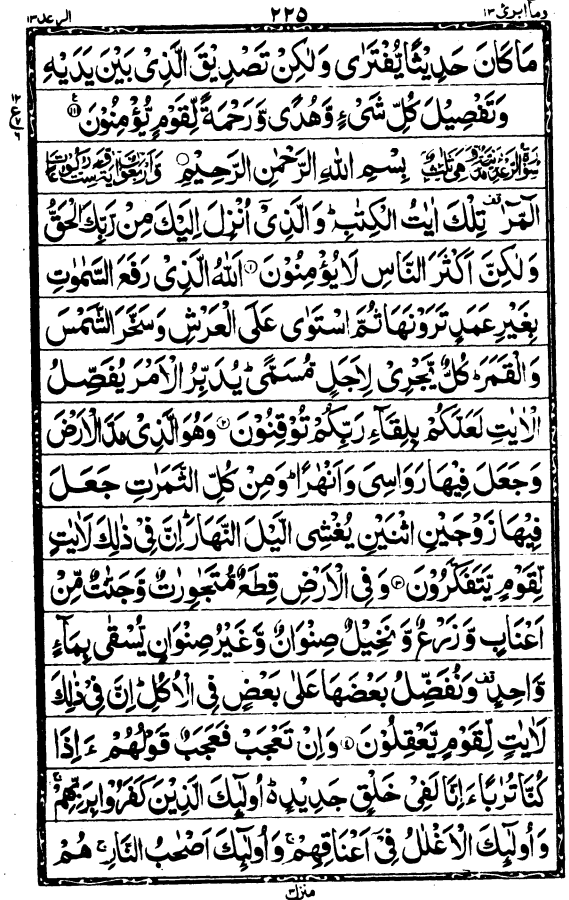 وما ابرئ ١٣
٢٢٥
الرعد ١٣
مَا كَانَ حَدِيْثًا يُّفْتَرٰى وَلٰكِنْ تَصْدِيْقَ الَّذِىْ بَيْنَ يَدَيْهِ
وَتَفْصِيْلَ كُلِّ شَىْءٍ وَّهُدًى وَّرَحْمَةً لِّقَوْمٍ يُّؤْمِنُوْنَ ﴿١١١﴾
بِسْمِ اللهِ الرَّحْمٰنِ الرَّحِيْمِ
الٓمّٓرٰ ۣ تِلْكَ اٰيٰتُ الْكِتٰبِ ؕ وَالَّذِىْٓ اُنْزِلَ اِلَيْكَ مِنْ رَّبِّكَ الْحَقُّ
وَلٰكِنَّ اَكْثَرَ النَّاسِ لَا يُؤْمِنُوْنَ ﴿١﴾ اَللهُ الَّذِىْ رَفَعَ السَّمٰوٰتِ
بِغَيْرِ عَمَدٍ تَرَوْنَهَا ثُمَّ اسْتَوٰى عَلَى الْعَرْشِ وَسَخَّرَ الشَّمْسَ
وَالْقَمَرَ ؕ كُلٌّ يَّجْرِىْ لِاَجَلٍ مُّسَمًّى ؕ يُدَبِّرُ الْاَمْرَ يُفَصِّلُ
الْاٰيٰتِ لَعَلَّكُمْ بِلِقَآءِ رَبِّكُمْ تُوْقِنُوْنَ ﴿٢﴾ وَهُوَ الَّذِىْ مَدَّ الْاَرْضَ
وَجَعَلَ فِيْهَا رَوَاسِىَ وَاَنْهٰرًا ؕ وَمِنْ كُلِّ الثَّمَرٰتِ جَعَلَ
فِيْهَا زَوْجَيْنِ اثْنَيْنِ يُغْشِى الَّيْلَ النَّهَارَ ؕ اِنَّ فِىْ ذٰلِكَ لَاٰيٰتٍ
لِّقَوْمٍ يَّتَفَكَّرُوْنَ ﴿٣﴾ وَفِى الْاَرْضِ قِطَعٌ مُّتَجٰوِرٰتٌ وَّجَنّٰتٌ مِّنْ
اَعْنَابٍ وَّزَرْعٌ وَّنَخِيْلٌ صِنْوَانٌ وَّغَيْرُ صِنْوَانٍ يُّسْقٰى بِمَآءٍ
وَّاحِدٍ ۣ وَنُفَضِّلُ بَعْضَهَا عَلٰى بَعْضٍ فِى الْاُكُلِ ؕ اِنَّ فِىْ ذٰلِكَ
لَاٰيٰتٍ لِّقَوْمٍ يَّعْقِلُوْنَ ﴿٤﴾ وَاِنْ تَعْجَبْ فَعَجَبٌ قَوْلُهُمْ ءَاِذَا
كُنَّا تُرٰبًا ءَاِنَّا لَفِىْ خَلْقٍ جَدِيْدٍ ؕ اُولٰٓئِكَ الَّذِيْنَ كَفَرُوْا بِرَبِّهِمْ ۚ
وَاُولٰٓئِكَ الْاَغْلٰلُ فِىْٓ اَعْنَاقِهِمْ ۚ وَاُولٰٓئِكَ اَصْحٰبُ النَّارِ ۚ هُمْ
منزل ٣